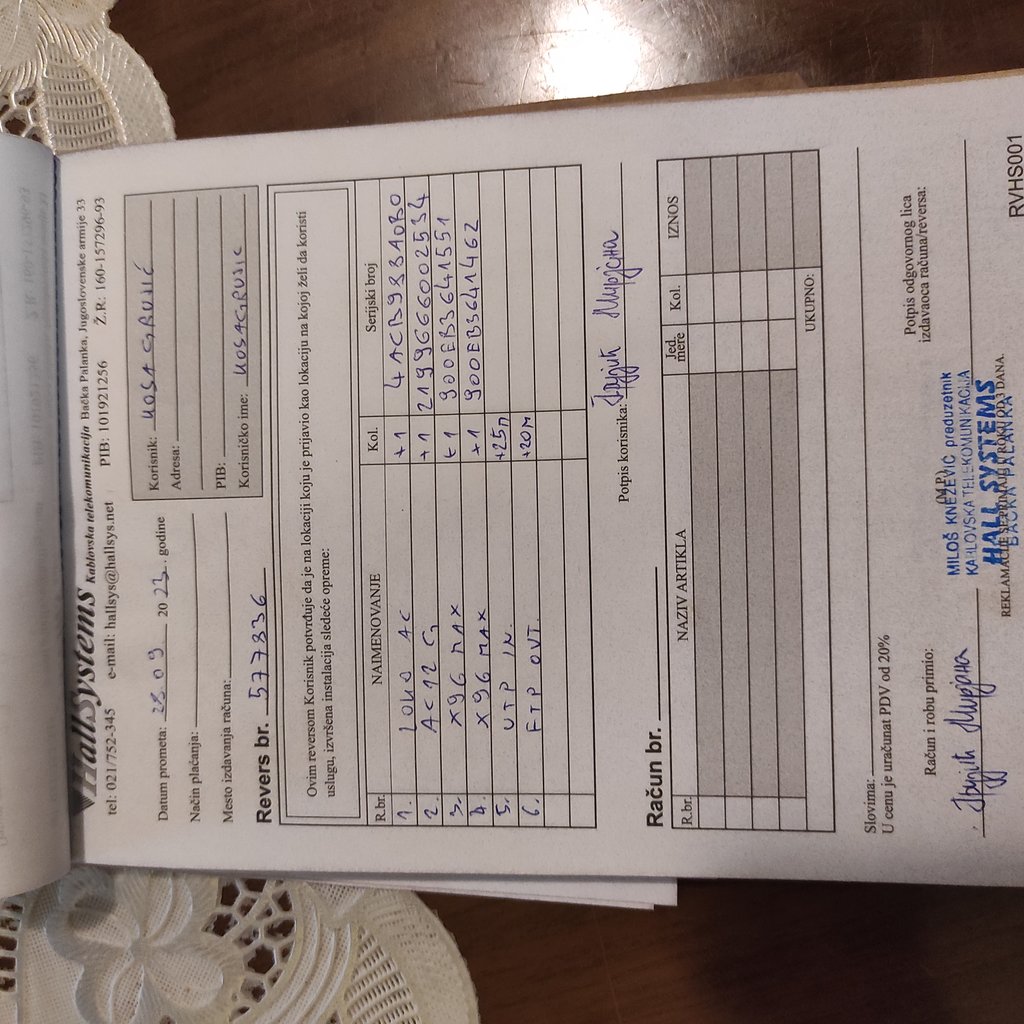 HallSystems Kablovska telekomunikacija Bačka Palanka, Jugoslovenske armije 33
tel: 021/752-345 e-mail: hallsys@hallsys.net PIB: 101921256 Ž.R: 160-157296-93
Datum prometa: 28.09 2023. godine
Način plaćanja:
Mesto izdavanja računa:
Korisnik: KOSAGRUJIĆ
Adresa:
PIB:
Korisničko ime: KOSAGRUJIC
Revers br. 577836
Ovim reversom Korisnik potvrđuje da je na lokaciji koju je prijavio kao lokaciju na kojoj želi da koristi
uslugu, izvršena instalacija sledeće opreme:
R.br. NAIMENOVANJE Kol. Serijski broj
1. LOKO AC +1 4ACB9383A0B0
2. AC12 G +1 2199666002534
3. X96 MAX +1 900EB3641551
4. X96 MAX +1 900EB3641462
5. UTP IN. +25m
6. FTP OUT. +20m
Potpis korisnika: Грујић Мирјана
Račun br.
R.br. NAZIV ARTIKLA Jed. mere Kol. IZNOS
UKUPNO:
Slovima:
U cenu je uračunat PDV od 20%
Račun i robu primio:
Грујић Мирјана
Potpis odgovornog lica
izdavaoca računa/reversa:
(M.P.)
MILOŠ KNEŽEVIĆ preduzetnik
KABLOVSKA TELEKOMUNIKACIJA
HALL SYSTEMS
BAČKA PALANKA
REKLAMACIJE SE PRIMAJU U ROKU OD 3 DANA.
RVHS001